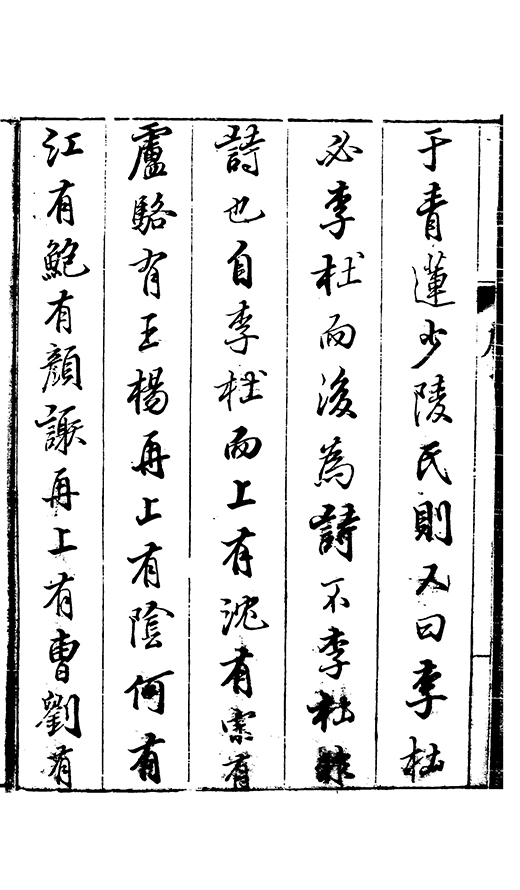 于青蓮少陵氏則又曰李杜
必李杜而後為詩不李杜非
詩也自李杜而上有沈有宋有
盧駱有王楊再上有陰何有
江有鮑有顏謝再上有曹劉有